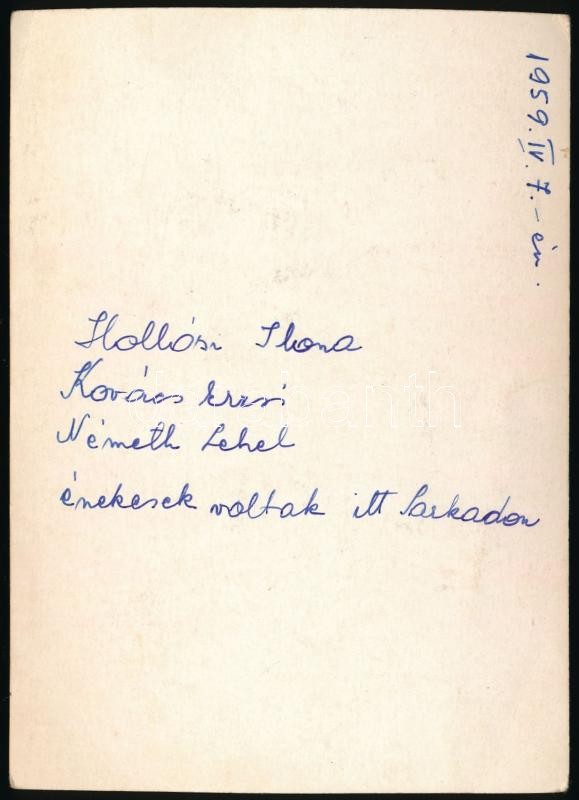 1959. IV. 7.-én.
Hollósi Ilona
Kovács Erzsi
Németh Lehel
énekesek voltak itt Sarkadon